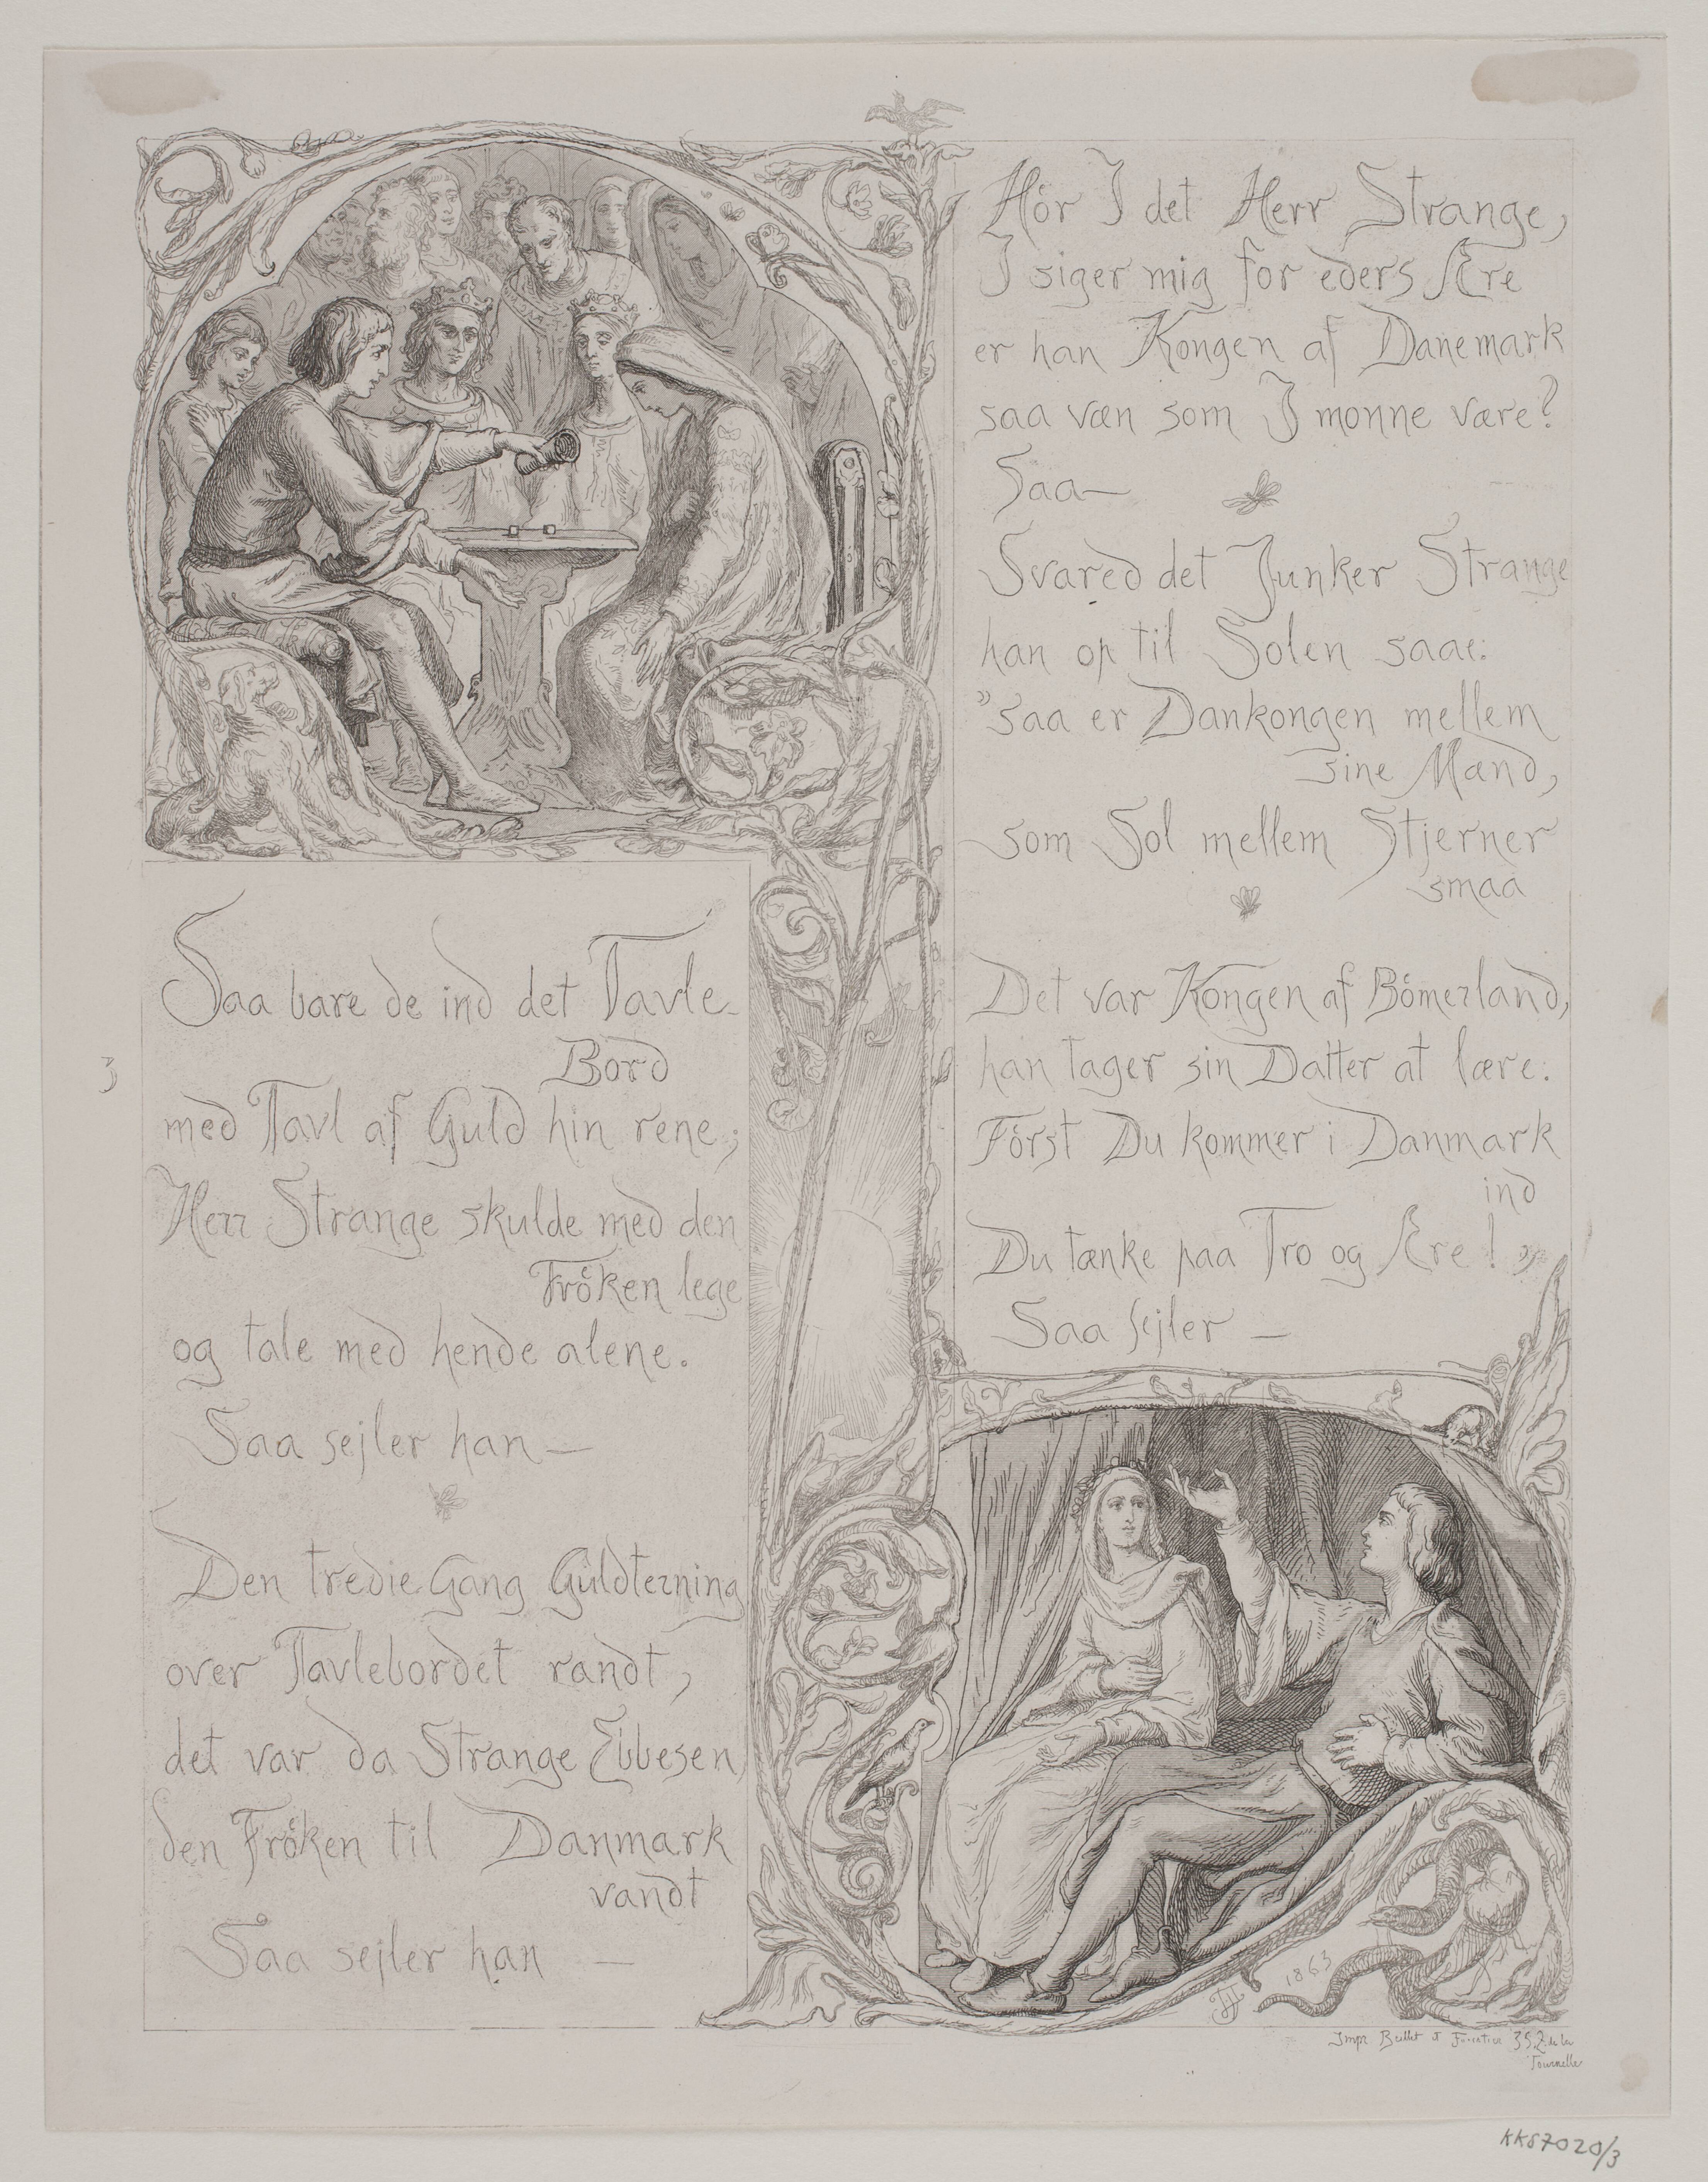 Saa bare de ind det Tavle-
Bord
med Tavl af Guld hin rene;
Herr Strange skulde med den
Fröken lege
og tale med hende alene.
Saa sejler han —
Den tredie Gang Guldterning
over Tavlebordet randt,
det var da Strange Ebbesen,
den Fröken til Danmark
vandt
Saa sejler han —
3
Hör I det Herr Strange,
I siger mig for eders Ære
er han Kongen af Danemark
saa væn som I monne være?
Saa —
Svared det Junker Strange
han op til Solen saae:
"saa er Dankongen mellem
sine Mænd,
som Sol mellem Stjerner
smaa
Det var Kongen af Bömerland,
han tager sin Datter at lære:
Först Du kommer i Danmark
ind
Du tænke paa Tro og Ære!"
Saa sejler —
1863
Impr 35 R. de la
Tournelle
KKS7020/3